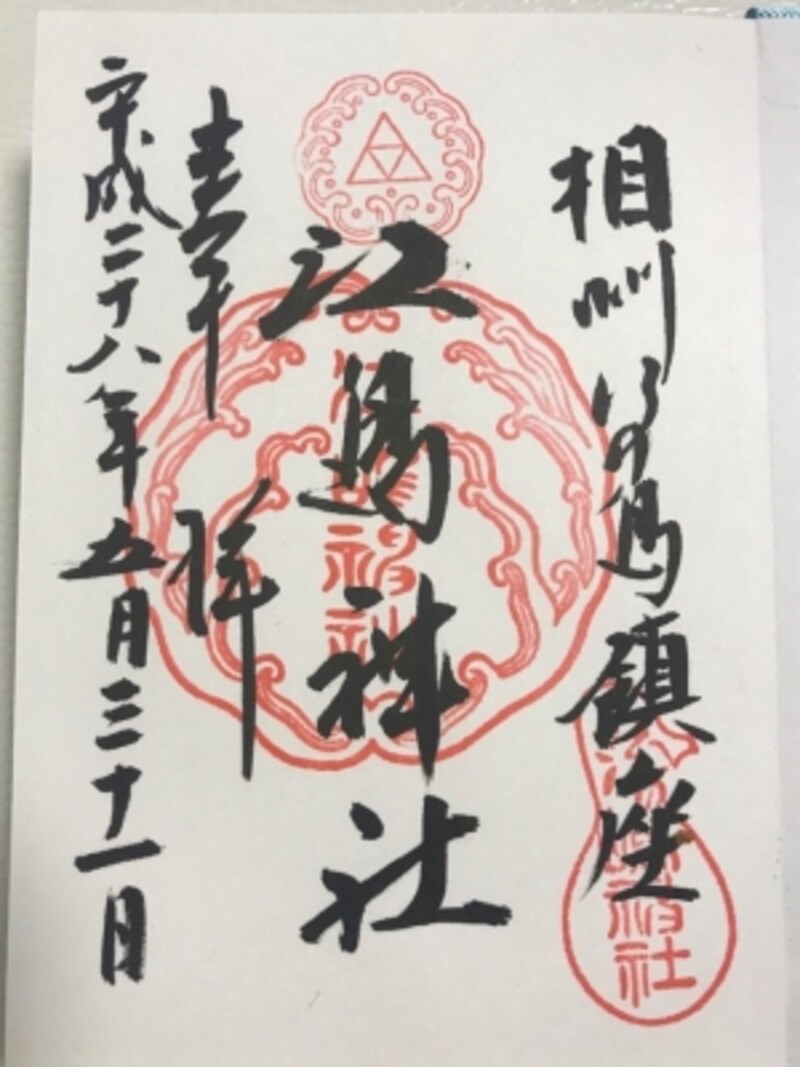 相州江の島鎮座
江島神社
奉拝
平成二十八年五月三十一日
江島神社
江島神社